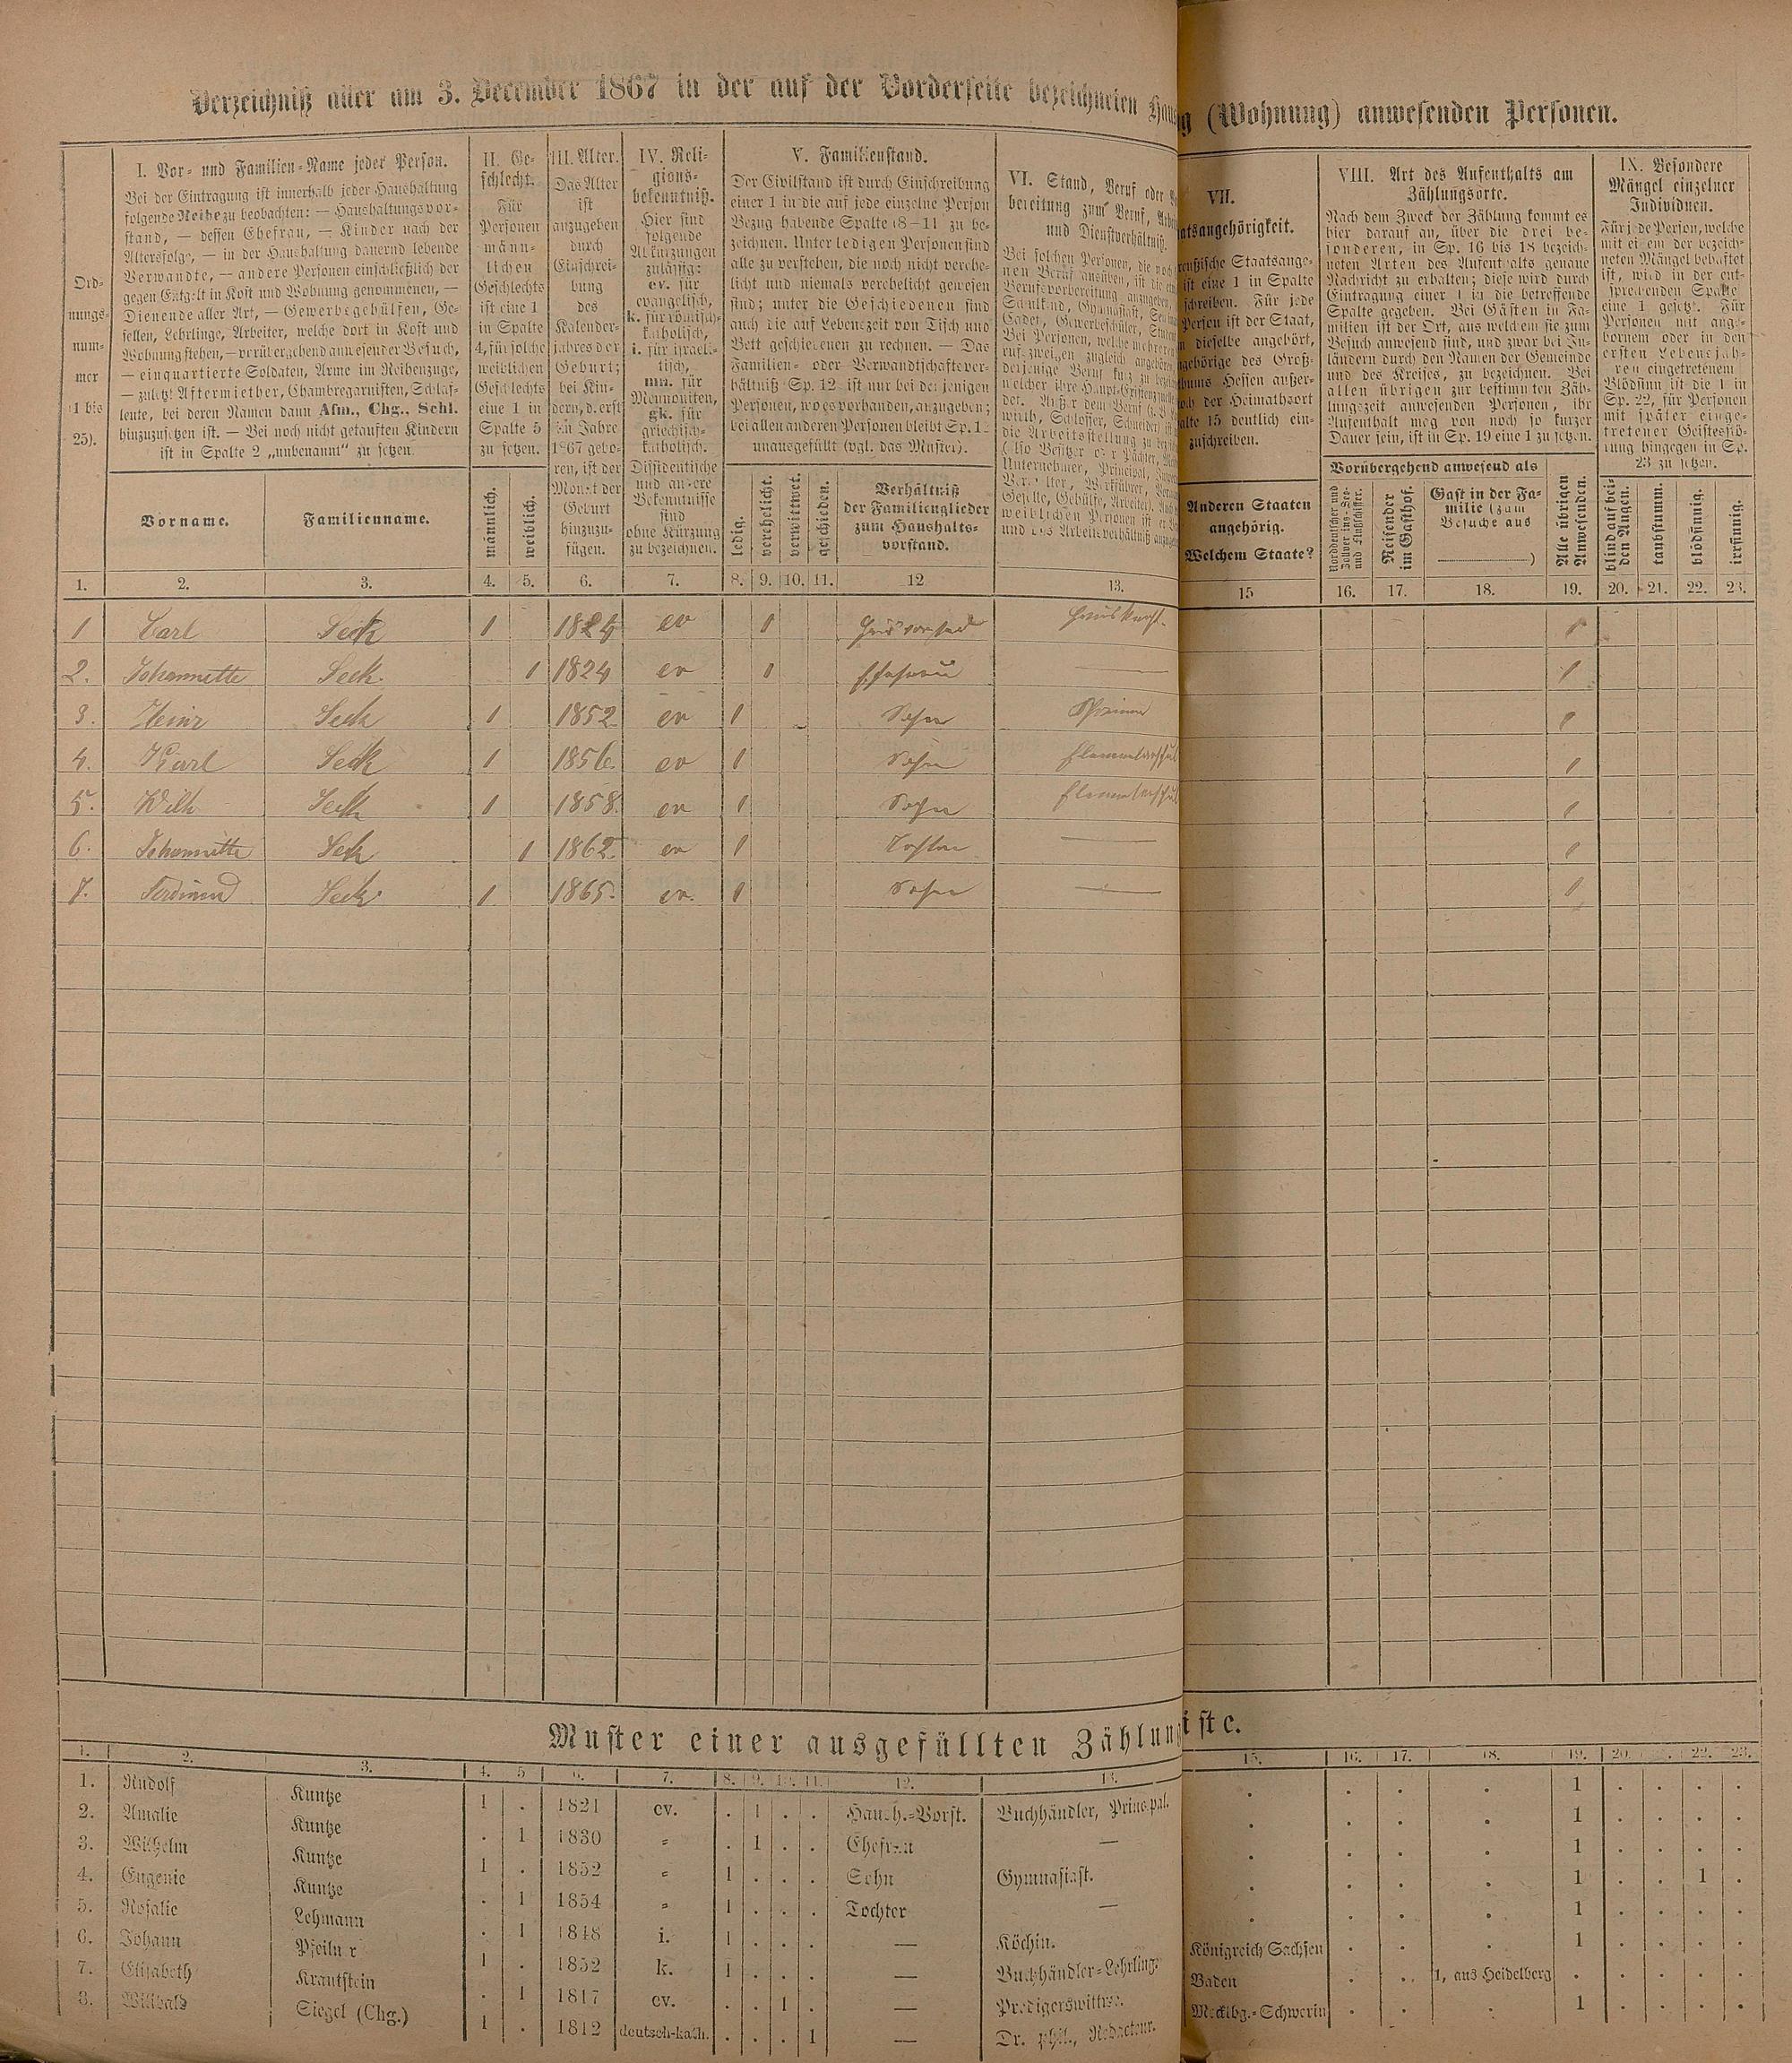 Verzeichniß aller am 3. December 1867 in der auf der Vorderseite bezeichneten Haus
g (Wohnung) anwesenden Personen.
Ord-
nungs-
num-
mer
(1 bis
25).
I. Vor- und Familien-Name jeder Person.
Bei der Eintragung ist innerhalb jeder Haushaltung
folgende Reihe zu beobachten: — Haushaltungsvor-
stand, — dessen Ehefrau, — Kinder nach der
Altersfolge, — in der Haushaltung dauernd lebende
Verwandte, — andere Personen einschließlich der
gegen Entgelt in Kost und Wohnung genommenen, —
Dienende aller Art, — Gewerbegehülfen, Ge-
sellen, Lehrlinge, Arbeiter, welche dort in Kost und
Wohnung stehen, — vorübergehend anwesender Besuch,
— einquartierte Soldaten, Arme im Reihenzuge,
— zuletzt Aftermiether, Chambregarnisten, Schlaf-
leute, bei deren Namen dann Afm., Chg., Schl.
hinzuzusetzen ist. — Bei noch nicht getauften Kindern
ist in Spalte 2 „unbenannt" zu setzen.
Vorname.
Familienname.
II. Ge-
schlecht.
Für
Personen
männ-
lichen
Geschlechts
ist eine 1
in Spalte
4, für solche
weiblichen
Geschlechts
eine 1 in
Spalte 5
zu setzen.
männlich.
weiblich.
III. Alter.
Das Alter
ist
anzugeben
durch
Einschrei-
bung
des
Kalender-
jahres der
Geburt;
bei Kin-
dern, d. erst
im Jahre
1867 gebo-
ren, ist der
Monat der
Geburt
hinzuzu-
fügen.
IV. Reli-
gions-
bekenntniß.
Hier sind
folgende
Abkürzungen
zulässig:
ev. für
evangelisch,
k. für römisch-
katholisch,
i. für israeli-
tisch,
mn. für
Mennoniten,
gk. für
griechisch-
katholisch.
Dissidentische
und andere
Bekenntnisse
sind
ohne Kürzung
zu bezeichnen.
V. Familienstand.
Der Civilstand ist durch Einschreibung
einer 1 in die auf jede einzelne Person
Bezug habende Spalte (8–11) zu be-
zeichnen. Unter ledigen Personen sind
alle zu verstehen, die noch nicht verehe-
licht und niemals verehelicht gewesen
sind; unter die Geschiedenen sind
auch die auf Lebenszeit von Tisch und
Bett geschiedenen zu rechnen. — Das
Familien- oder Verwandtschaftsver-
hältniß Sp. 12 ist nur bei denjenigen
Personen, wo es vorhanden, anzugeben;
bei allen anderen Personen bleibt Sp. 12
unausgefüllt (vgl. das Muster).
ledig.
verehelicht.
verwittwet.
geschieden.
Verhältniß
der Familienglieder
zum Haushalts-
vorstand.
VI. Stand, Beruf oder
bereitung zum Beruf,
und Dienstverhältniß.
VII.
atsangehörigkeit.
Anderen Staaten
angehörig.
Welchem Staate?
VIII. Art des Aufenthalts am
Zählungsorte.
Nach dem Zweck der Zählung kommt es
hier darauf an, über die drei be-
sonderen, in Sp. 16 bis 18 bezeich-
neten Arten des Aufenthalts genaue
Nachricht zu erhalten; diese wird durch
Eintragung einer 1 in die betreffende
Spalte gegeben. Bei Gästen in Fa-
milien ist der Ort, aus welchem sie zum
Besuch anwesend sind, und zwar bei In-
ländern durch den Namen der Gemeinde
und des Kreises, zu bezeichnen. Bei
allen übrigen zur bestimmten Zäh-
lungszeit anwesenden Personen, ihr
Aufenthalt mag von noch so kurzer
Dauer sein, ist in Sp. 19 eine 1 zu setzen.
Vorübergehend anwesend als
Reisender
im Gasthof.
Gast in der Fa-
milie (zum
Besuche aus
)
Alle übrigen
Anwesenden.
IX. Besondere
Mängel einzelner
Individuen.
Für jede Person, welche
mit einem der bezeich-
neten Mängel behaftet
ist, wird in der ent-
sprechenden Spalte
eine 1 gesetzt. Für
Personen mit ange-
bornem oder in den
ersten Lebensjah-
ren eingetretenem
Blödsinn ist die 1 in
Sp. 22, für Personen
mit später einge-
tretener Geistesstö-
rung hingegen in Sp.
23 zu setzen.
blind auf bei-
den Augen.
taubstumm.
blödsinnig.
irrsinnig.
1. 2. 3. 4. 5. 6. 7. 8. 9. 10. 11. 12 13. 15 16. 17. 18. 19. 20. 21. 22. 23.
1 Carl Seck 1 1824 ev 1 1
2. Johannette Seck. 1 1824 ev 1 Ehefrau — 1
3. Heinr Seck 1 1852 ev 1 Sohn 1
4. Karl Seck 1 1856 ev 1 Sohn Elementarschül 1
5. Wilh Seck 1 1858. ev 1 Sohn Elementarschül 1
6. Johannette Seck 1 1862 ev 1 Tochter — 1
7. Ferdinand Seck 1 1865. ev. 1 Sohn — 1
Muster einer ausgefüllten Zählung
iste.
1. 2. 3. 4. 5 6. 7. 8. 9. 10. 11. 12. 13. 15. 16. 17. 18. 19. 20. 22. 23.
1. Rudolf Kuntze 1 . 1821 ev. . 1 . . Haush.-Vorst. Buchhändler, Principal. . . . . 1 . . . .
2. Amalie Kuntze . 1 1830 „ . 1 . . Ehefrau — . . . . 1 . . . .
3. Wilhelm Kuntze 1 . 1852 „ 1 . . . Sohn Gymnasiast. . . . . 1 . . . .
4. Eugenie Kuntze . 1 1854 „ 1 . . . Tochter — . . . . 1 . . 1 .
5. Rosalie Lehmann . 1 1848 i. 1 . . . — Köchin. . . . . 1 . . . .
6. Johann 1 . 1852 k. 1 . . . — Buchhändler-Lehrling. Königreich Sachsen . . . 1 . . . .
7. Elisabeth Krautstein . 1 1817 ev. . . 1 . — Predigerswittwe. Baden . . 1, aus Heidelberg . . . . .
8. Willibald Siegel (Chg.) 1 . 1812 deutsch-kath. . . . 1 — Dr. phil., Redacteur. Mecklbg.-Schwerin . . . 1 . . . .